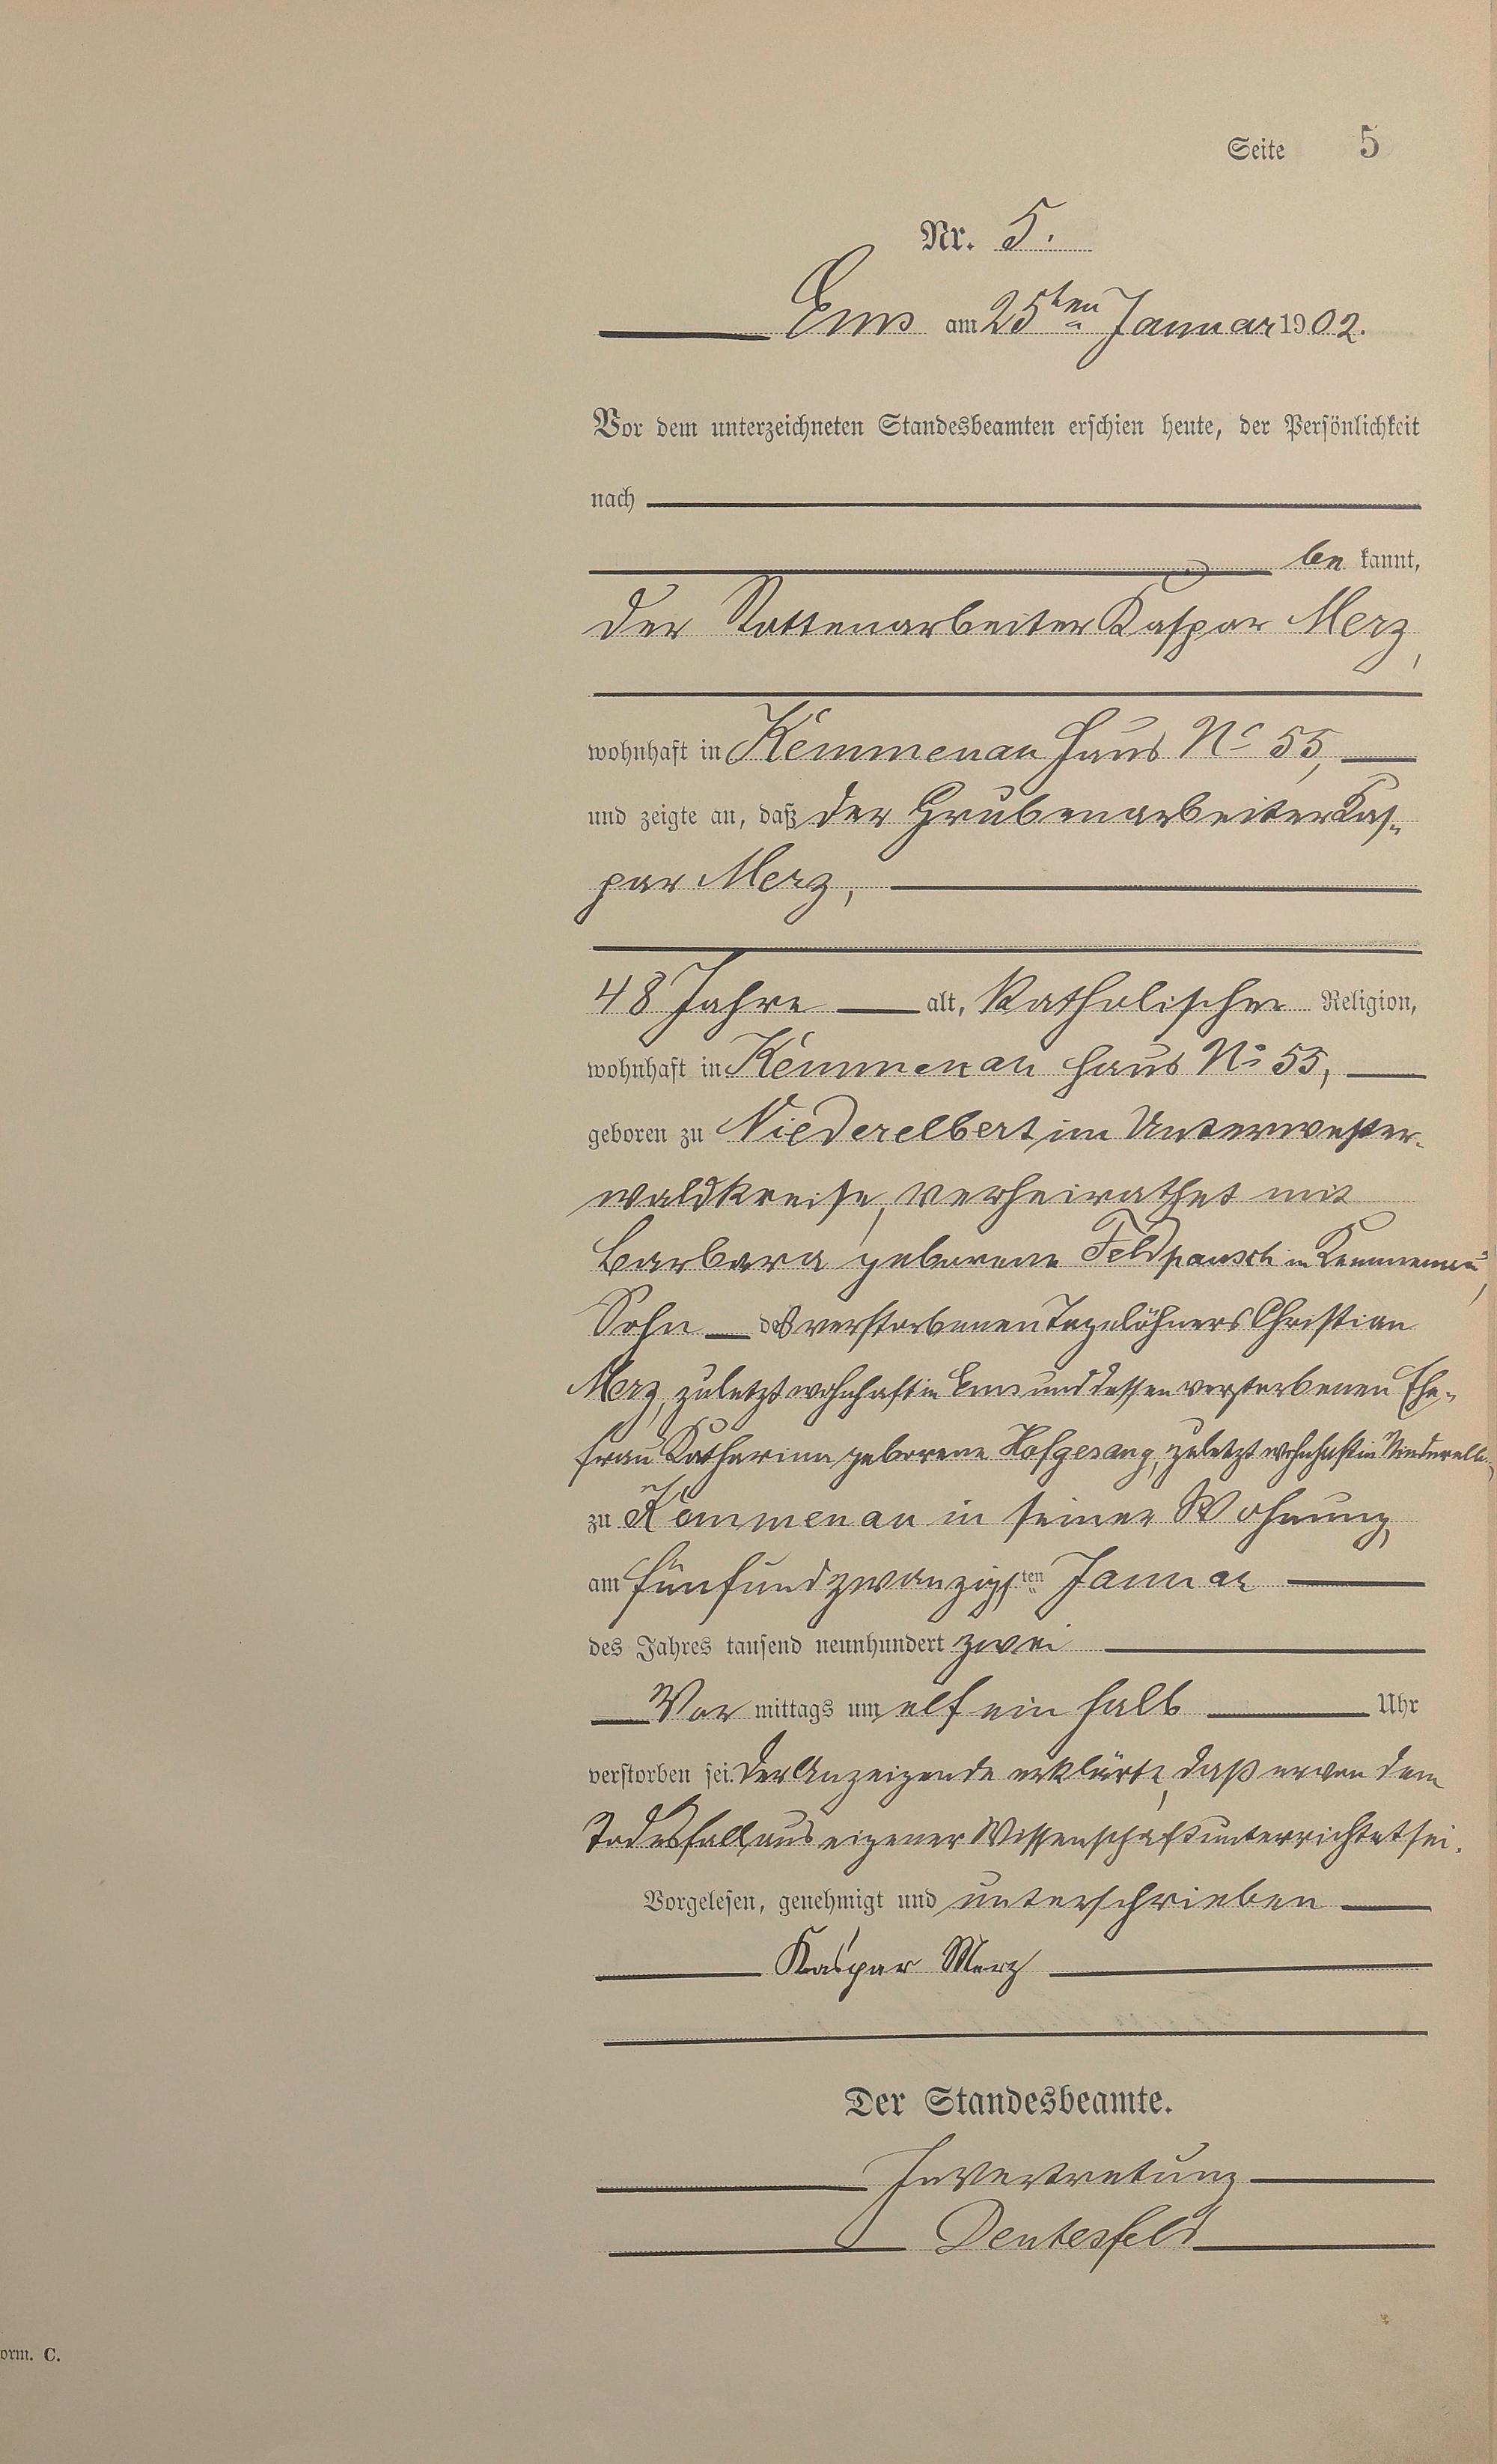 Seite 5
Nr. 5.
Ems am 25ten Januar 1902.
Vor dem unterzeichneten Standesbeamten erschien heute, der Persönlichkeit
nach
be kannt,
der Rottenarbeiter Kaspar Merz,
wohnhaft in Kemmenau Haus No 55,
und zeigte an, daß der Grubenarbeiter Kas-
par Merz,
48 Jahre alt, katholischer Religion,
wohnhaft in Kemmenau Haus No 55,
geboren zu Niederelbert im Unterwester-
waldkreise, verheirathet mit
Barbara geborene Feldpausch in Kemmenau,
Sohn des verstorbenen Tagelöhners Christian
Merz, zuletzt wohnhaft in Ems und dessen verstorbenen Ehe-
frau Katharina geborene Hofgesang, zuletzt wohnhaft in
zu Kemmenau in seiner Wohnung
am fünfundzwanzigsten Januar
des Jahres tausend neunhundert zwei
Vor mittags um elf ein halb Uhr
verstorben sei. Der Anzeigende erklärte, daß er von dem
Todesfall aus eigener Wissenschaft unterrichtet sei.
Vorgelesen, genehmigt und unterschrieben
Kaspar Merz
Der Standesbeamte.
In Vertretung
orm. C.